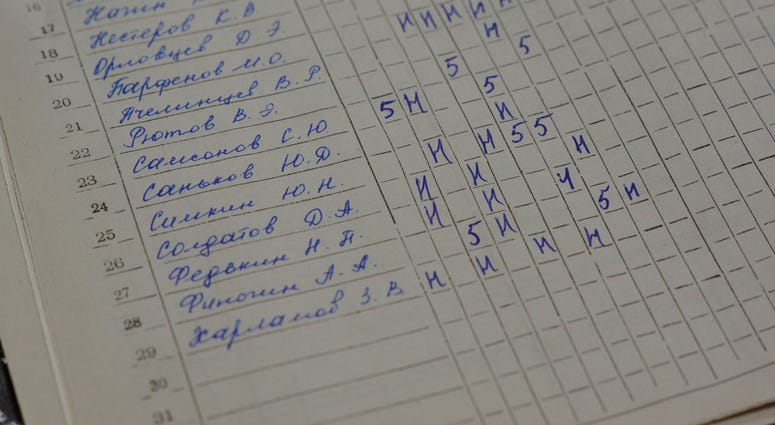 16 Нагин
17 Нестеров К.В
18 Орловцев Д.Э.
19 Парфенов М.О. Н Н Н Н Н
20 Пчелинцев В.Р. Н
21 Рютов В.Э. 5 5
22 Самсонов С.Ю 5 Н 5
23 Саньков Ю.Д. Н
24 Симкин Ю.Н. Н Н 5 5
25 Солдатов Д.А. Н Н Н
26 Федькин Н.П. Н Н Ч
27 Финогин А.А. 5 Н 5 Н
28 Харламов З.В. Н Н Н Н
29
30
31